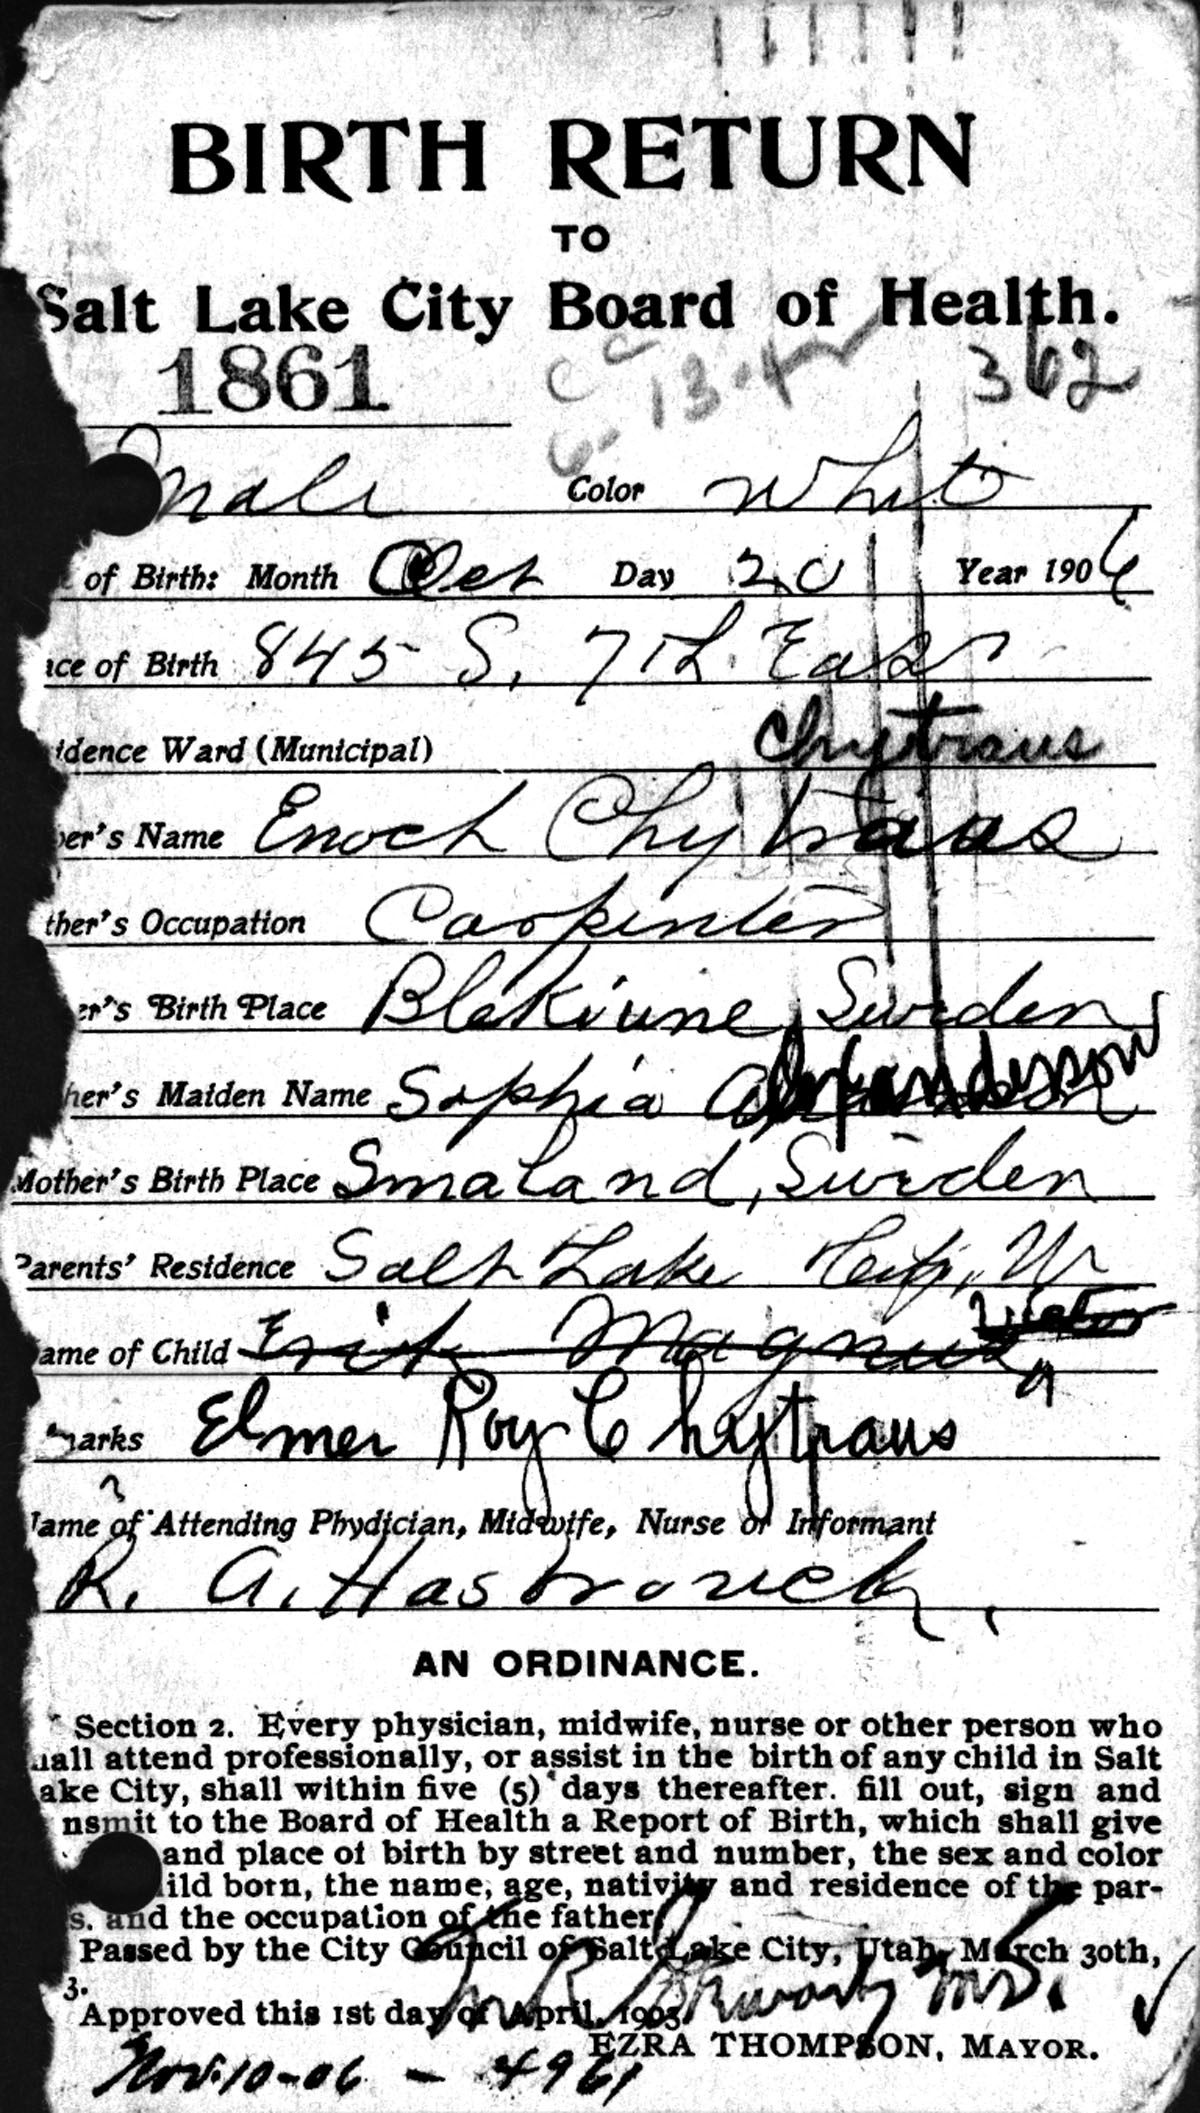 BIRTH RETURN
TO
Salt Lake City Board of Health.
1861 362
Male Color White
of Birth: Month Oct Day 20 Year 1906
ace of Birth 845 S. 7th. East
idence Ward (Municipal) Chytraus
er's Name Enoch Chytraus
ther's Occupation Carpenter
er's Birth Place Blekiune, Sweden
her's Maiden Name Sophia Anderson
Mother's Birth Place Smaland, Sweden
Parents' Residence Salt Lake City, Ut
ame of Child Erick Magnus Victor
marks Elmer Roy Chytraus
Name of Attending Phydician, Midwife, Nurse or Informant
R. A. Hasbrouck
AN ORDINANCE.
Section 2. Every physician, midwife, nurse or other person who
hall attend professionally, or assist in the birth of any child in Salt
ake City, shall within five (5) days thereafter. fill out, sign and
nsmit to the Board of Health a Report of Birth, which shall give
and place of birth by street and number, the sex and color
ild born, the name, age, nativity and residence of the par-
s. and the occupation of the father.
Passed by the City Council of Salt Lake City, Utah, March 30th,
3.
Approved this 1st day of April, 1903.
EZRA THOMPSON, MAYOR.
Nov. 10-06 - 4961